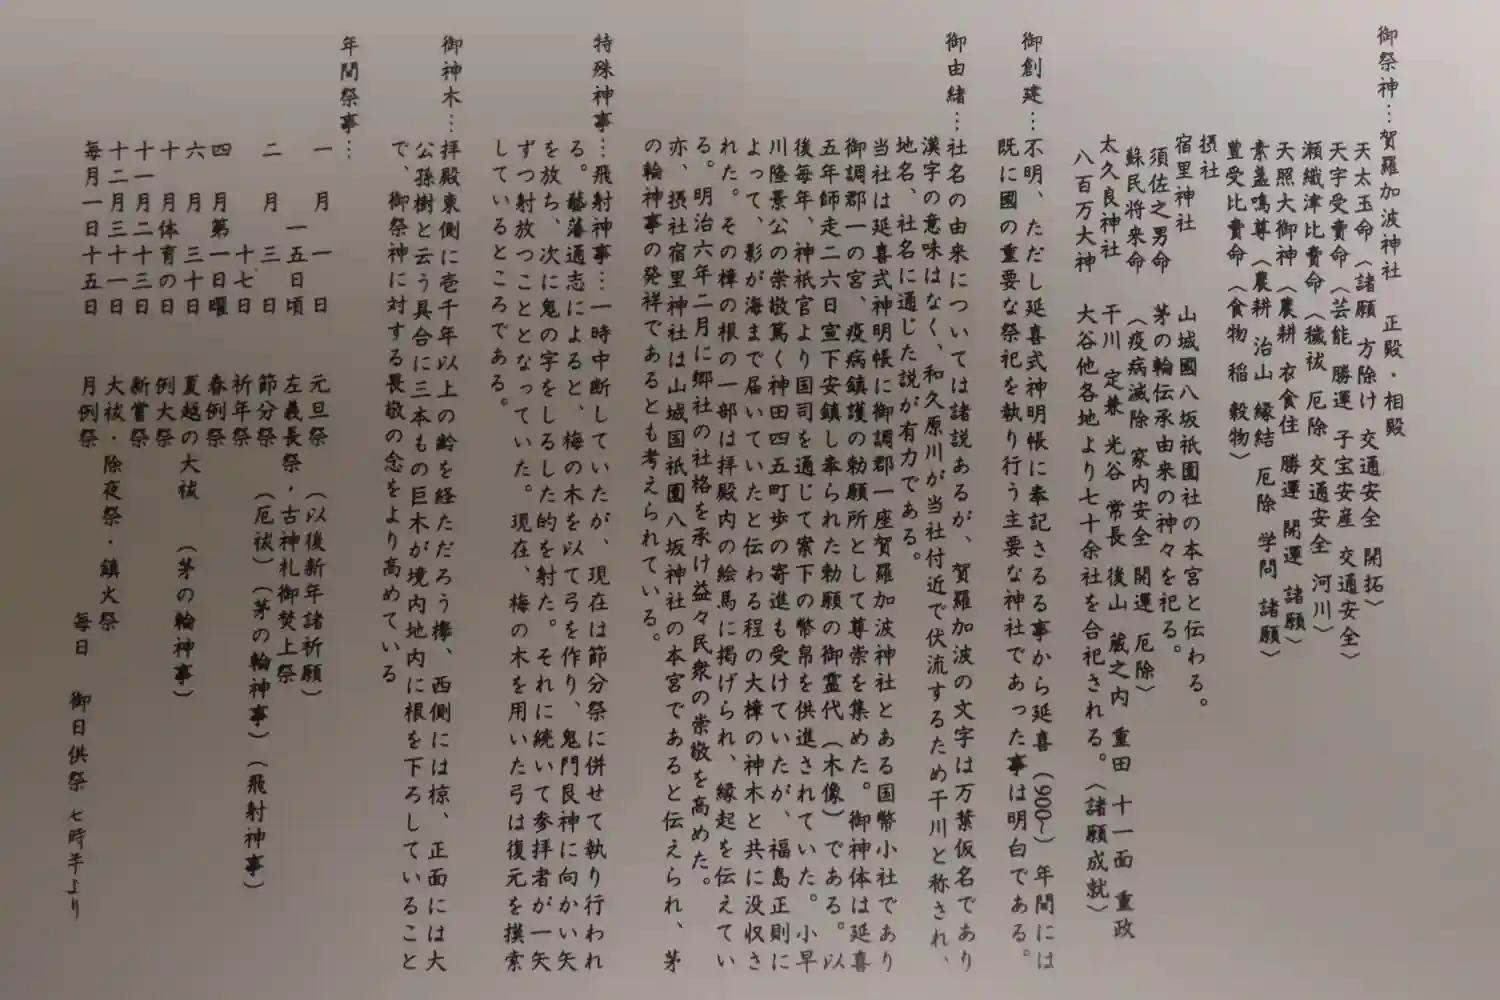 御祭神…賀羅加波神社 正殿・相殿
天太玉命（諸願 方除け 交通安全 開拓）
天宇受賣命（芸能 勝運 子宝安産 交通安全）
瀬織津比賣命（穢祓 厄除 交通安全 河川）
天照大御神（農耕 衣食住 勝運 開運 諸願）
素盞鳴尊（農耕 治山 縁結 厄除 学問 諸願）
豊受比賣命（食物 稲 穀物）
摂社
宿里神社 山城國八坂祇園社の本宮と伝わる。
須佐之男命 茅の輪伝承由来の神々を祀る。
蘇民将来命 （疫病滅除 家内安全 開運 厄除）
太久良神社 干川 定兼 光谷 常長 後山 蔵之内 重田 十一面 重政
八百万大神 大谷他各地より七十余社を合祀される。（諸願成就）
御創建…不明、ただし延喜式神明帳に奉記さるる事から延喜（900～）年間には
既に國の重要な祭祀を執り行う主要な神社であった事は明白である。
御由緒…社名の由来については諸説あるが、賀羅加波の文字は万葉仮名であり
漢字の意味はなく、和久原川が当社付近で伏流するため干川と称され、
地名、社名に通じた説が有力である。
当社は延喜式神明帳に御調郡一座賀羅加波神社とある国幣小社であり
御調郡一の宮、疫病鎮護の勅願所として尊崇を集めた。御神体は延喜
五年師走二六日宣下安鎮し奉られた勅願の御霊代（木像）である。以
後毎年、神祇官より国司を通じて案下の幣帛を供進されていた。小早
川隆景公の崇敬篤く神田四五町歩の寄進も受けていたが、福島正則に
よって、影が海まで届いていたと伝わる程の大樟の神木と共に没収さ
れた。その樟の根の一部は拝殿内の絵馬に掲げられ、縁起を伝えてい
る。明治六年二月に郷社の社格を承け益々民衆の崇敬を高めた。
亦、摂社宿里神社は山城国祇園八坂神社の本宮であると伝えられ、茅
の輪神事の発祥であるとも考えられている。
特殊神事…飛射神事…一時中断していたが、現在は節分祭に併せて執り行われ
る。藝藩通志によると、梅の木を以て弓を作り、鬼門艮神に向かい矢
を放ち、次に鬼の字をしるした的を射た。それに続いて参拝者が一矢
ずつ射放つこととなっていた。現在、梅の木を用いた弓は復元を摸索
しているところである。
御神木…拝殿東側に壱千年以上の齢を経ただろう欅、西側には椋、正面には大
公孫樹と云う具合に三本もの巨木が境内地内に根を下ろしていること
で、御祭神に対する畏敬の念をより高めている
年間祭事…
一月一日 元旦祭 （以後新年諸祈願）
一五日頃 左義長祭・古神札御焚上祭
二月三日 節分祭 （厄祓）（茅の輪神事）（飛射神事）
十七日 祈年祭
四月第一日曜 春例祭
六月三十日 夏越の大祓 （茅の輪神事）
十月体育の日 例大祭
十一月二十三日 新嘗祭
十二月三十一日 大祓・除夜祭・鎮火祭
毎月一日十五日 月例祭 毎日 御日供祭 七時半より